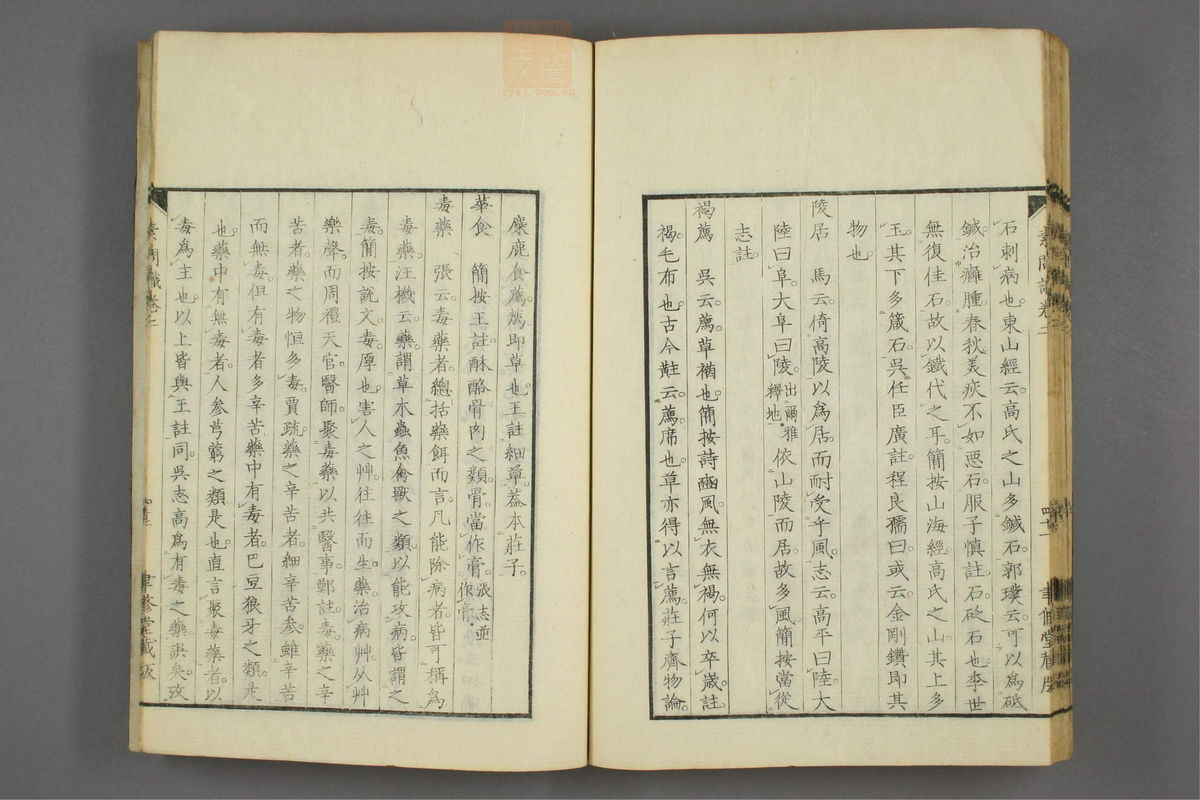 石刺病也東山經云高氏之山多鍼石郭璞云可以爲砥
鍼治癰腫春秋美疢不如惡石服子愼註石砭石也季世
無復佳石故以鐵代之耳簡按山海經高氏之山其上多
玉其下多箴石吳任臣廣註程良孺曰或云金剛鑽即其
物也
陵居　馬云倚高陵以爲居而耐受乎風志云高平曰陸大
陸曰阜大阜曰陵出爾雅釋地依山陵而居故多風簡按當從
志註
褐薦　吳云薦草裀也簡按詩豳風無衣無褐何以卒歲註
褐毛布也古今註云薦席也草亦得以言薦莊子齊物論
素問識卷二
聿修堂藏版
麋鹿食薦薦即草也王註細草蓋本莊子
華食　簡按王註酥酪骨肉之類骨當作膏張志並作膏
毒藥　張云毒藥者總括藥餌而言凡能除病者皆可稱爲
毒藥汪機云藥謂草木蟲魚禽獸之類以能攻病皆謂之
毒簡按說文毒厚也害人之艸往往而生藥治病艸从艸
樂聲而周禮天官醫師聚毒藥以共醫事鄭註毒藥之辛
苦者藥之物恒多毒賈疏藥之辛苦者細辛苦參雖辛苦
而無毒但有毒者多辛苦藥中有毒者巴豆狼牙之類是
也藥中有無毒者人參芎藭之類是也直言聚毒藥者以
毒爲主也以上皆與王註同吳志高爲有毒之藥誤矣攻
素問識卷二
聿修堂藏版